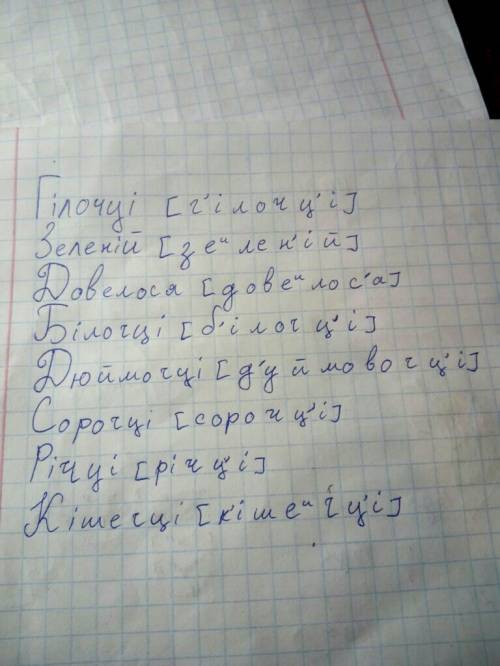 Гілочці [г'ілочц'і]
Зеленій [зеᶦленʼій]
Довелося [довеᶦлос'а]
Білочці [б'ілочц'і]
Дюймочці [д'уймовочц'і]
Сорочці [сорочц'і]
Річці [річц'і]
Кішечці [к'ішеᶦчц'і]